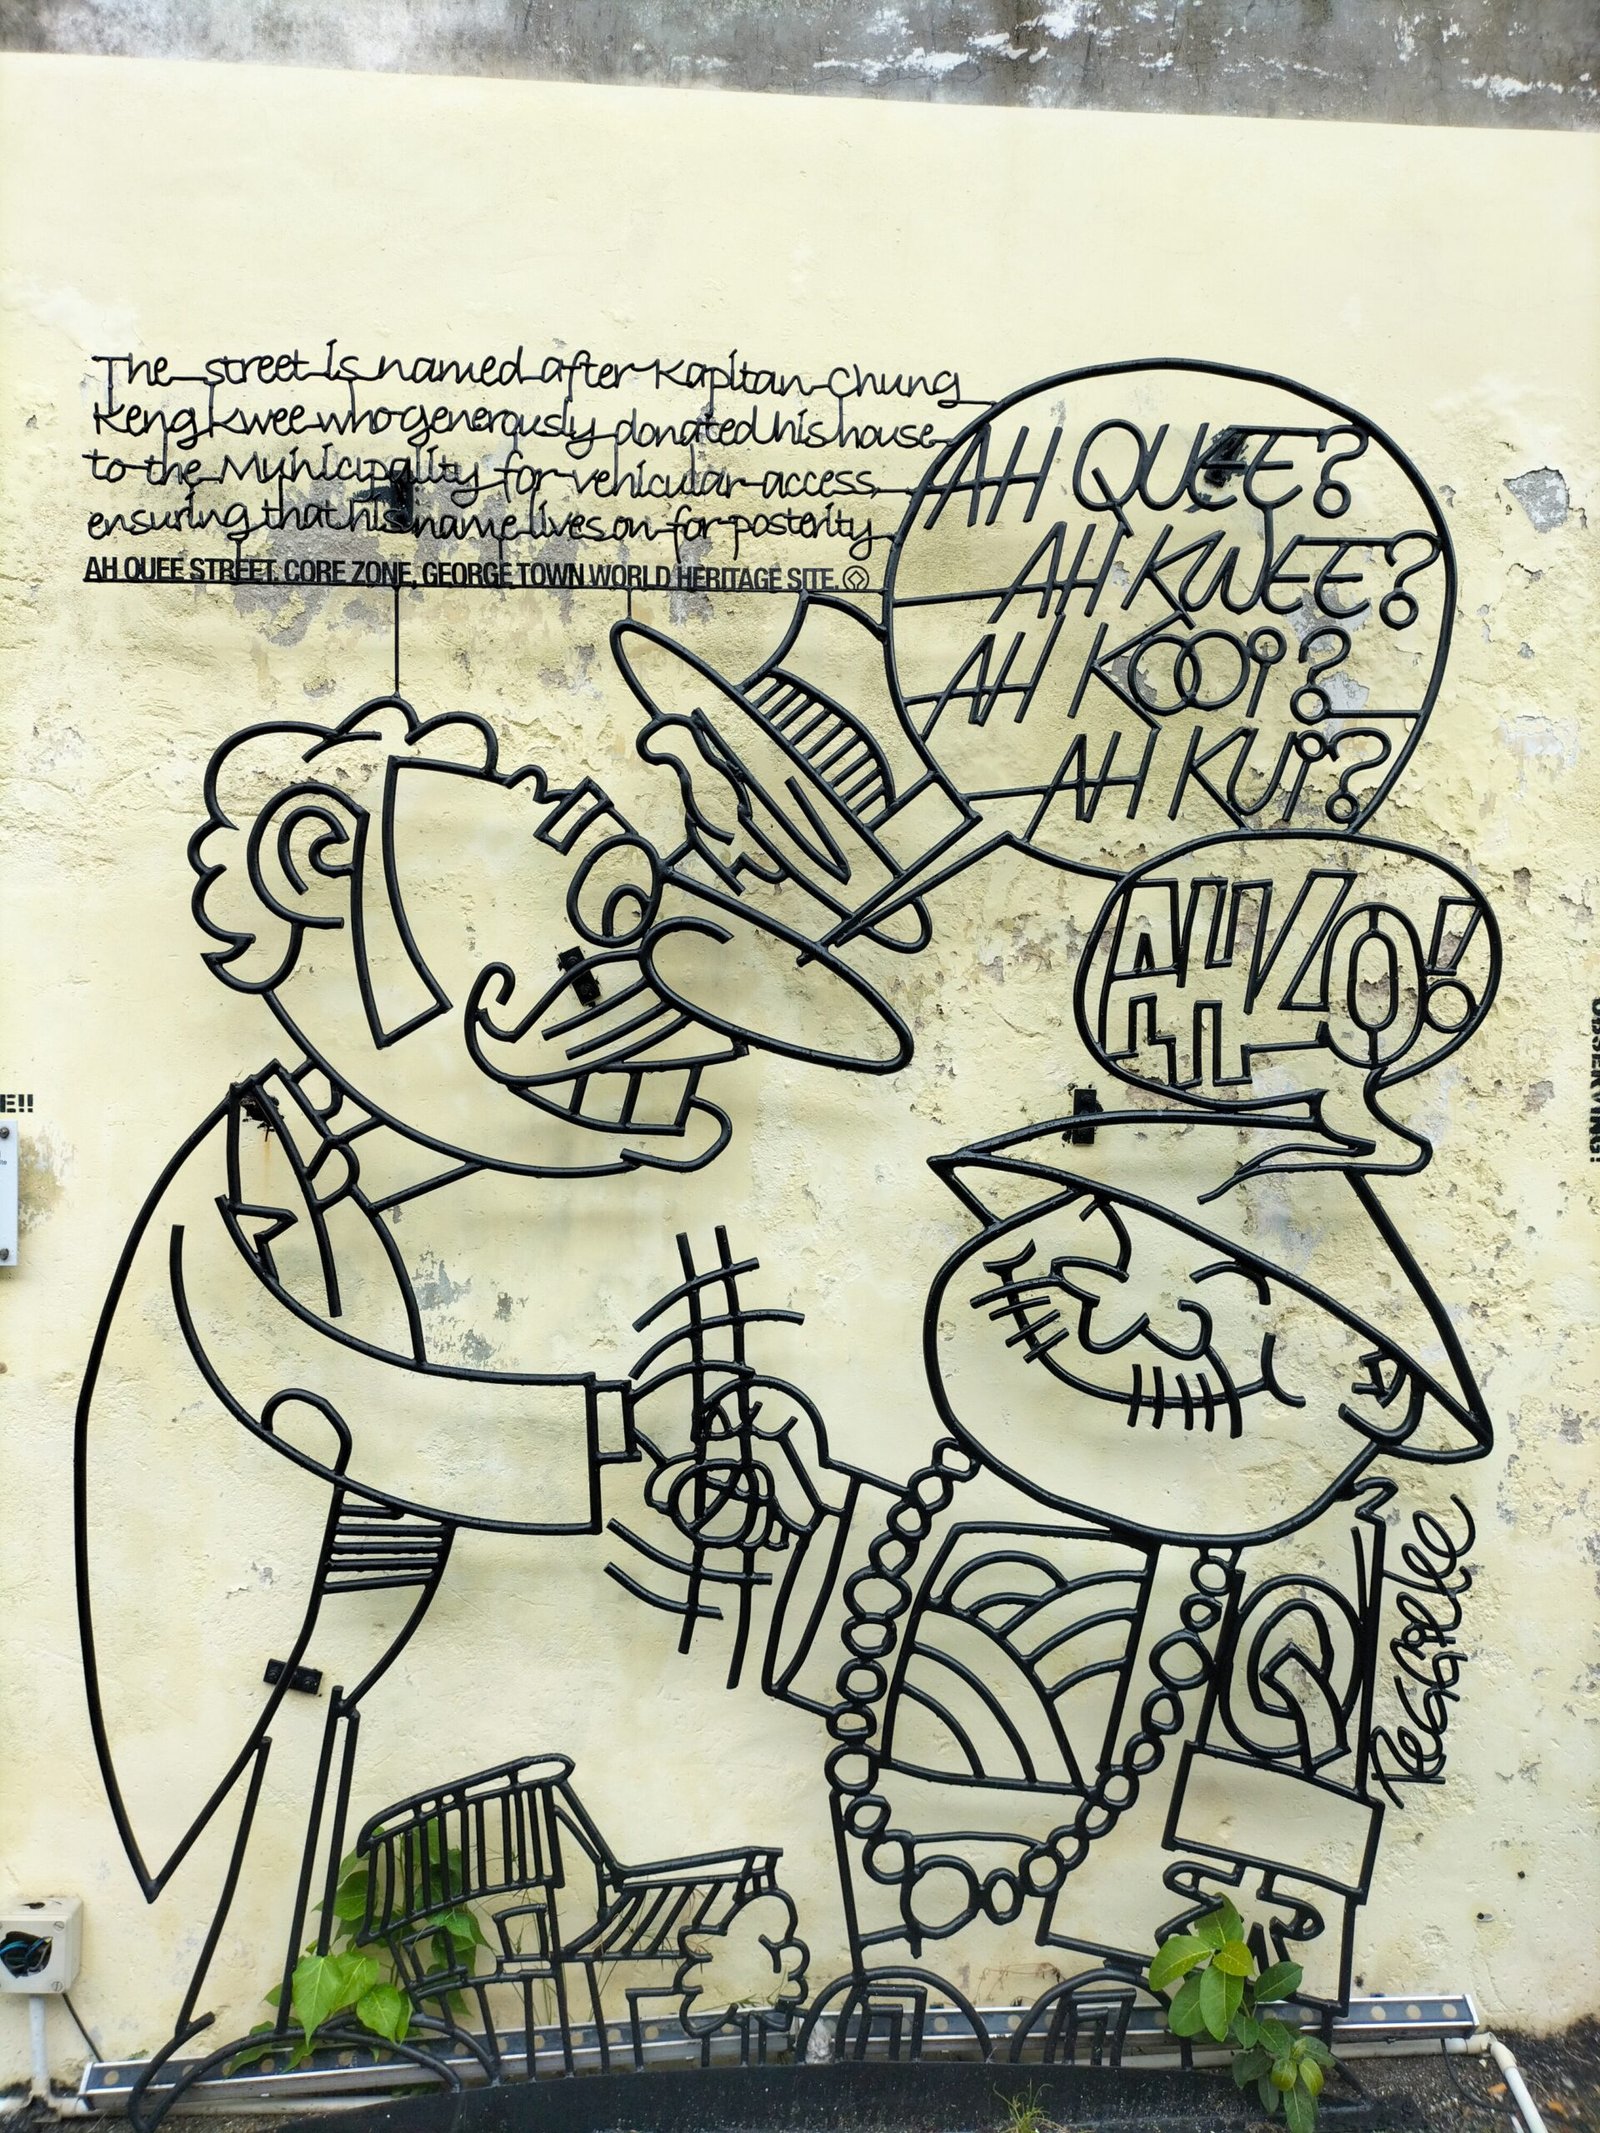 The street is named after Kapitan Chung
Keng Kwee who generously donated his house
to the Municipality for vehicular access,
ensuring that his name lives on for posterity
AH QUEE STREET, CORE ZONE, GEORGE TOWN WORLD HERITAGE SITE.
AH QUEE?
AH KWEE?
AH KOOi?
AH KUi?
AH LO!
Q
E!!
OBSERVING!!